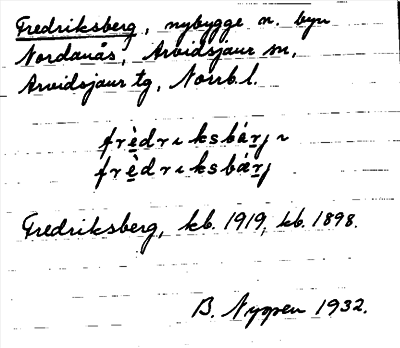 Fredriksberg, nybygge n. byn
Nordanås, Arvidsjaur sn,
Arvidsjaur tg, Norrb. l.
frèdrıksbárjı
frèdrıksbærj
Fredriksberg, kb. 1919, kb. 1898.
B. Nygren 1932.